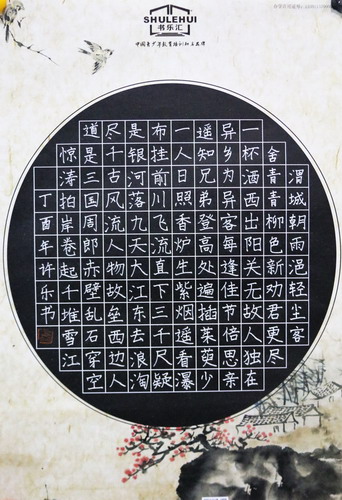 SHULEHUI
书乐汇
渭城朝雨浥轻尘客
舍青青柳色新劝君更尽
一杯酒西出阳关无故人独在
异乡为异客每逢佳节倍思亲
遥知兄弟登高处遍插茱萸少
一人日照香炉生紫烟遥看瀑
布挂前川飞流直下三千尺疑
是银河落九天大江东去浪淘
尽千古风流人物故垒西边人
道是三国周郎赤壁乱石穿空
惊涛拍岸卷起千堆雪江
丁酉年许乐书